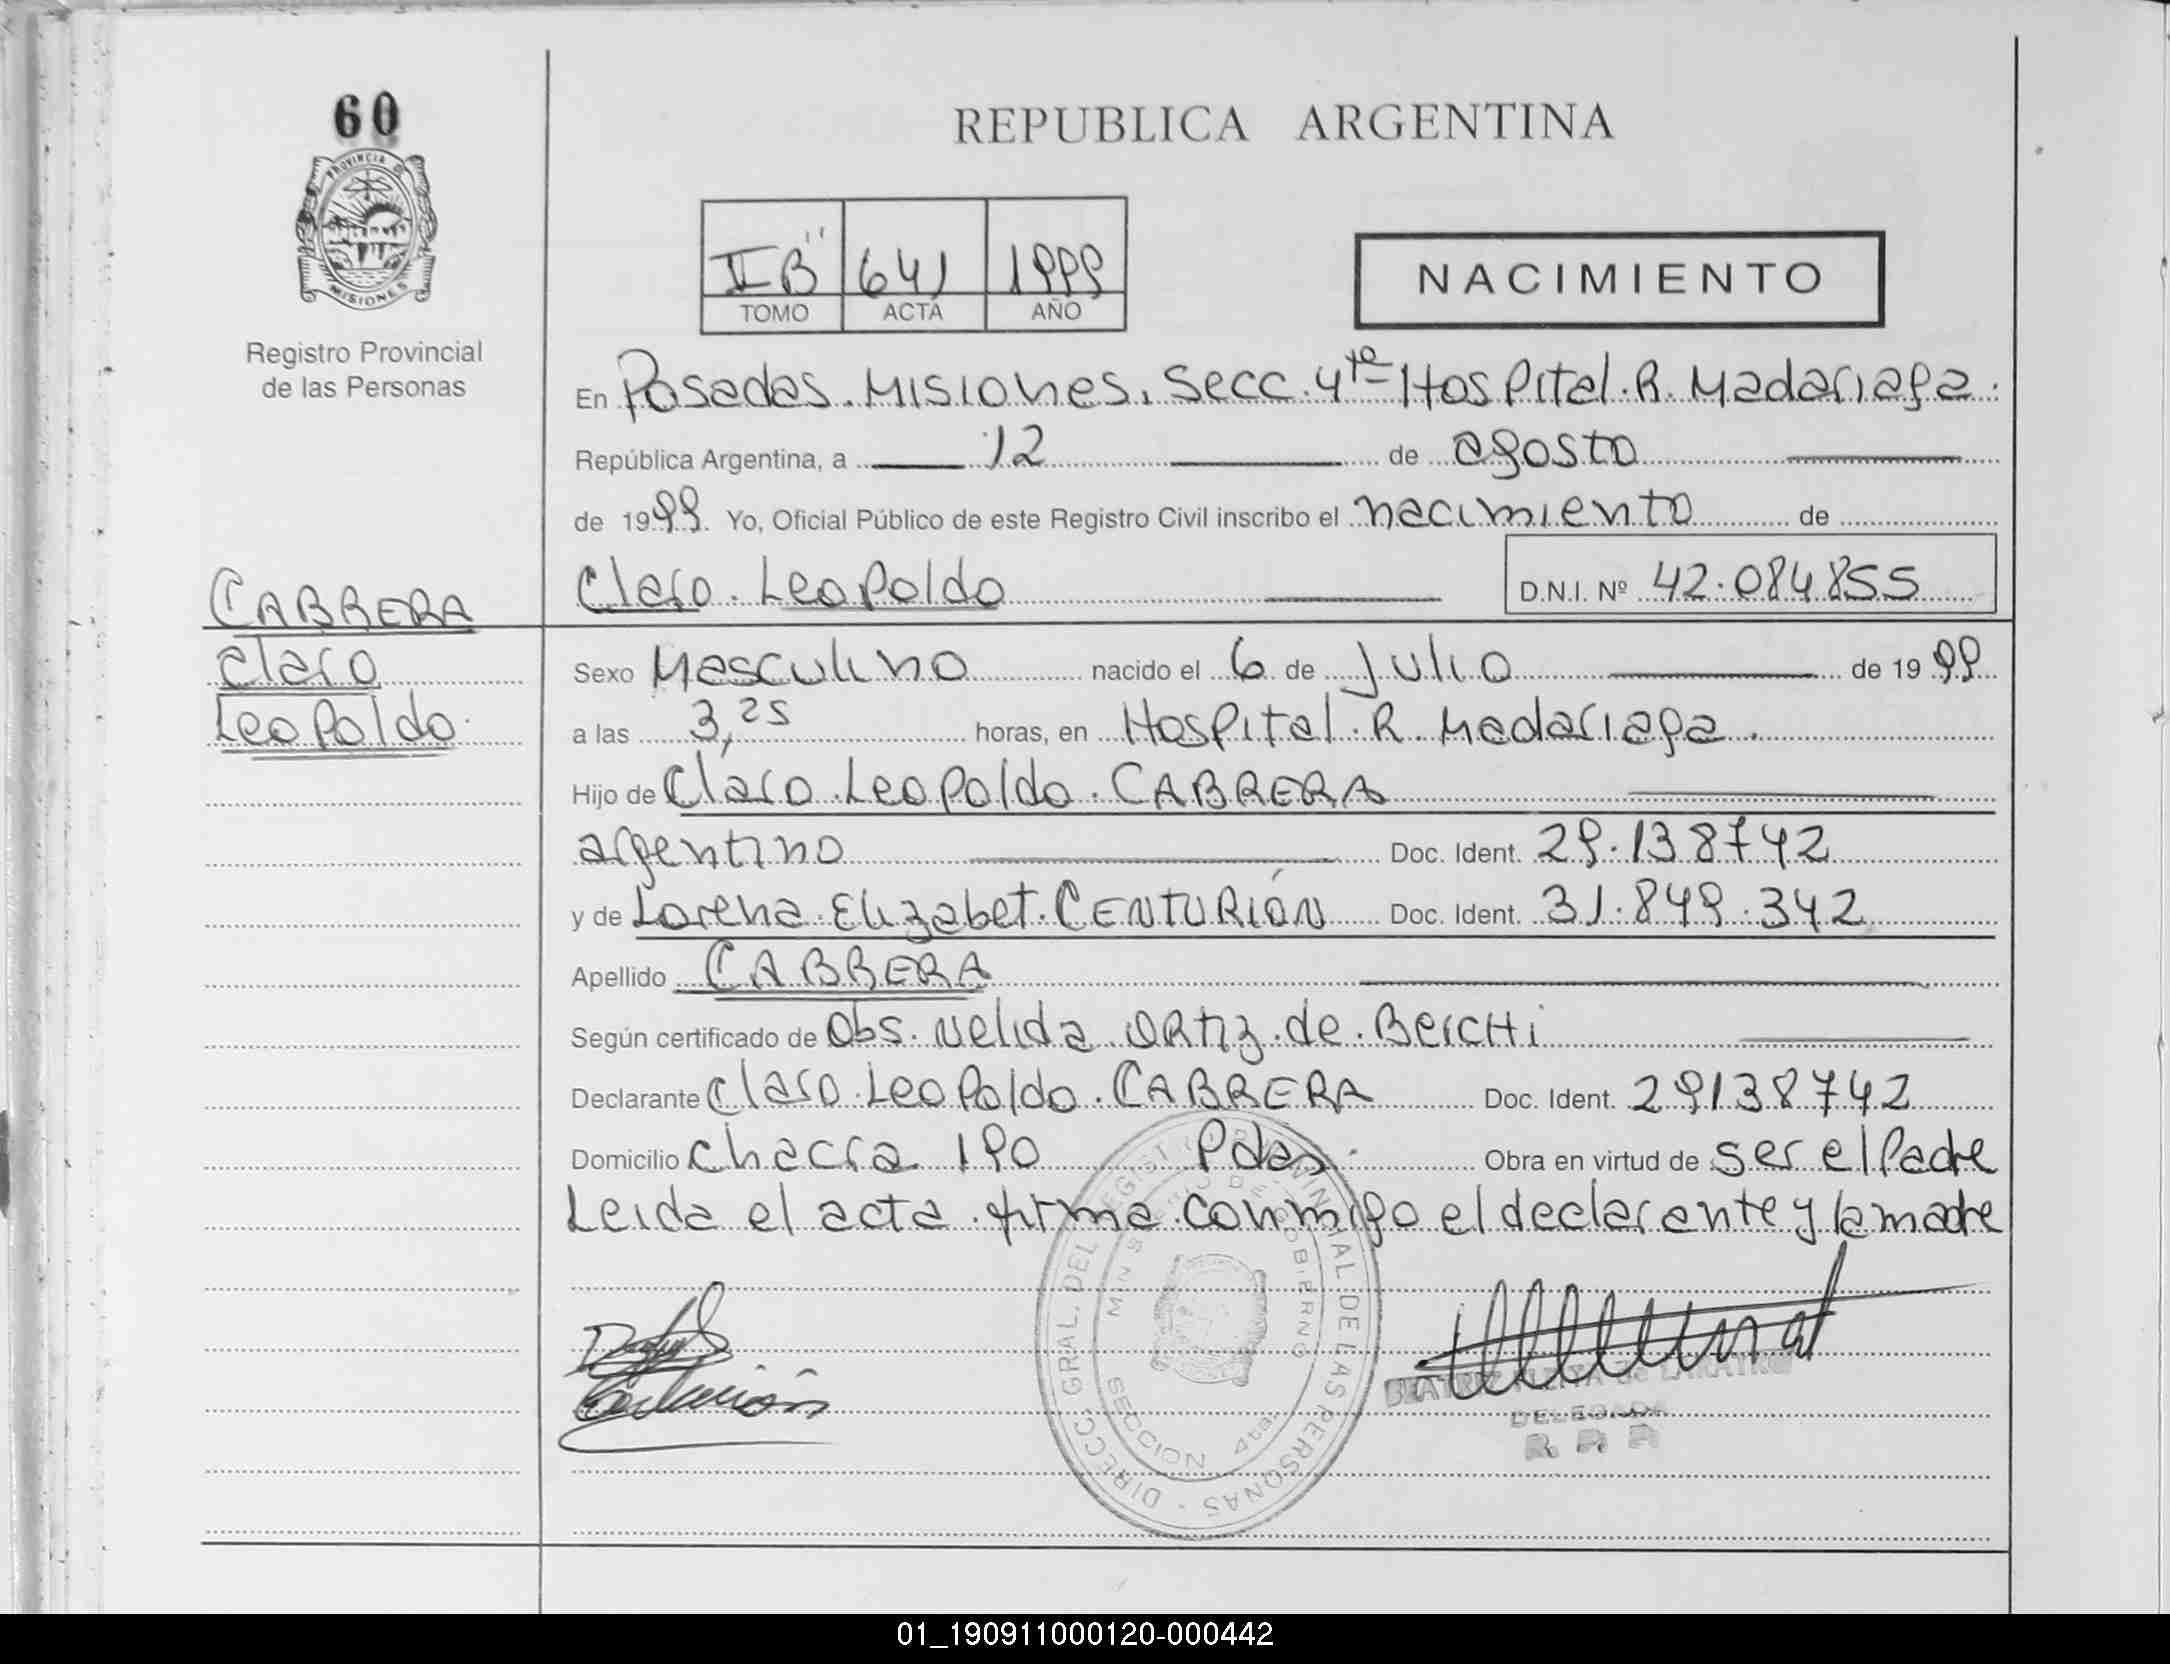 60
PROVINCIA D
MISIONES
Registro Provincial
de las Personas
CABRERA
Claro
Leopoldo
REPUBLICA ARGENTINA
II "B" 641 1999
TOMO ACTA AÑO
NACIMIENTO
En Posadas. Misiones. Secc. 4ta Hospital. R. Madariaga.
República Argentina, a 12 de agosto
de 1999. Yo, Oficial Público de este Registro Civil inscribo el nacimiento de
Claro. Leopoldo D.N.I. Nº 42.084.855
Sexo Masculino nacido el 6 de Julio de 1999
a las 3,25 horas, en Hospital. R. Madariaga.
Hijo de Claro. Leopoldo. CABRERA
argentino Doc. Ident. 29.138742
y de Lorena. Elizabet. CENTURIÓN Doc. Ident. 31.849.342
Apellido CABRERA
Según certificado de Obs. Nelida ORTIZ. de. BeiCHi
Declarante Claro. Leopoldo. CABRERA Doc. Ident. 29138742
Domicilio Chacra 190 Pdas. Obra en virtud de ser el Padre
Leida el acta. firma. conmigo el declarante y la madre
DIRECC. GRAL. DEL REGIST PROVINCIAL DE LAS PERSONAS
SECCION 4ta.
Centurión
BEATRIZ
DELEGADA
R. P. P.
01_190911000120-000442